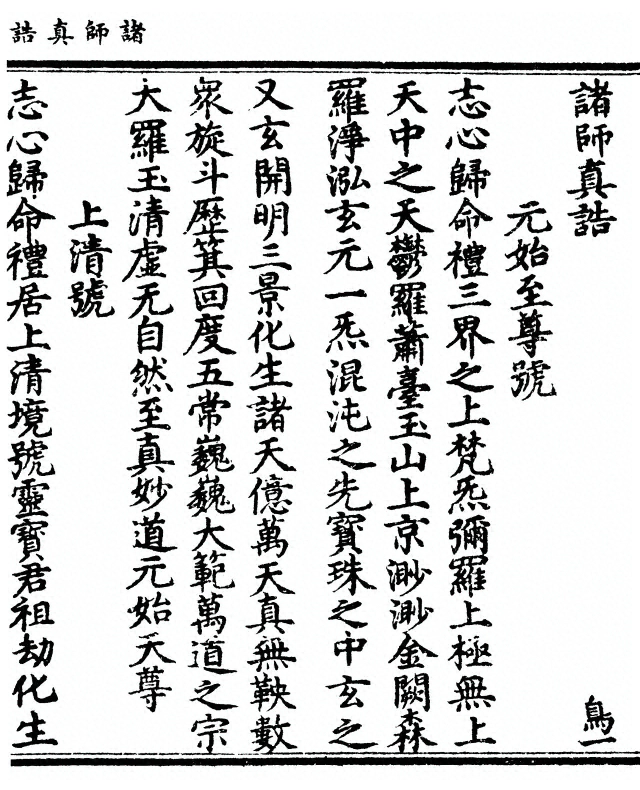 諸師真誥
諸師真誥 鳥一
元始至尊號
志心歸命禮三界之上梵炁彌羅上極無上
天中之天鬱羅蕭臺玉山上京渺渺金闕森
羅淨泓玄元一炁混沌之先寶珠之中玄之
又玄開明三景化生諸天億萬天真無鞅數
衆旋斗歷箕回度五常巍巍大範萬道之宗
大羅玉清虛无自然至真妙道元始天尊
上清號
志心歸命禮居上清境號靈寶君祖劫化生